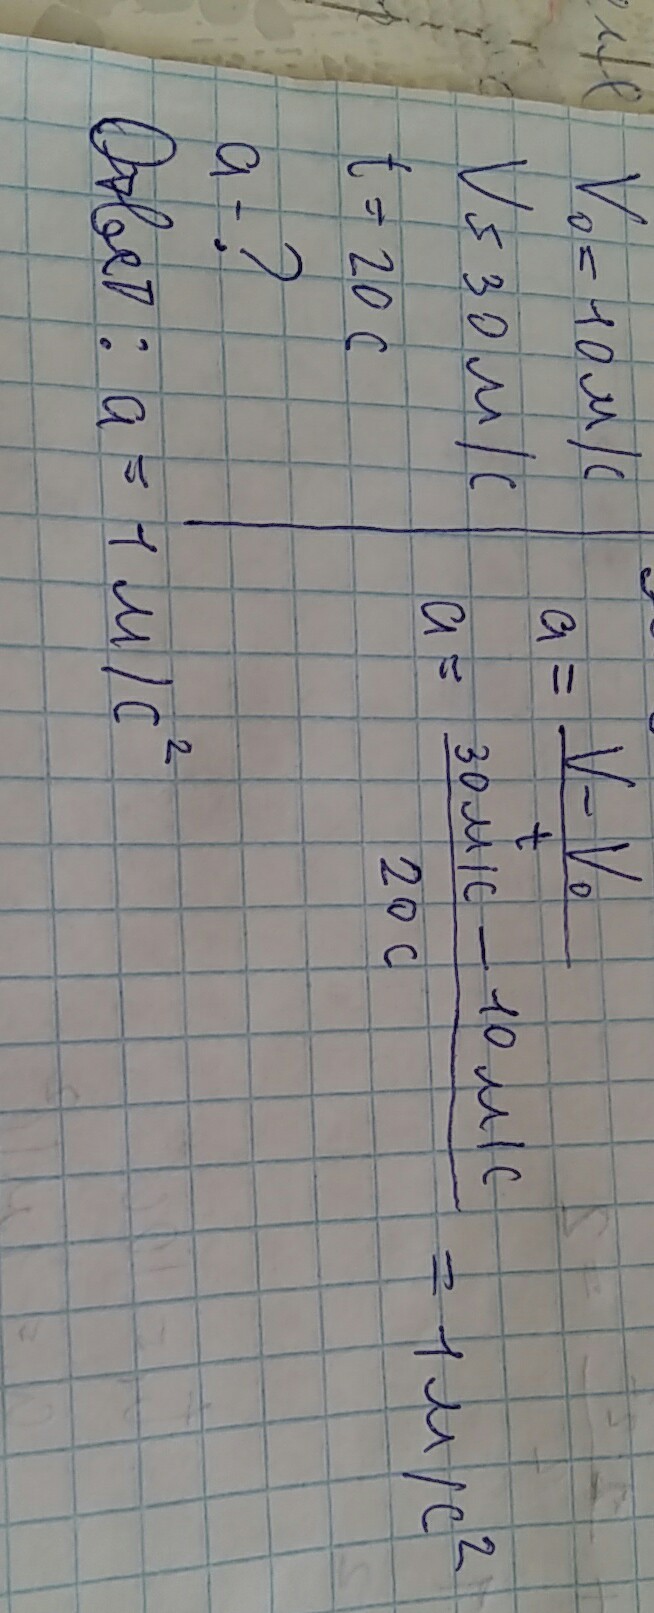 V₀ = 10 м/с
V = 30 м/с
t = 20 с
a - ?
a = (V - V₀) / t
a = (30 м/с - 10 м/с) / 20 с = 1 м/с²
Ответ: a = 1 м/с²